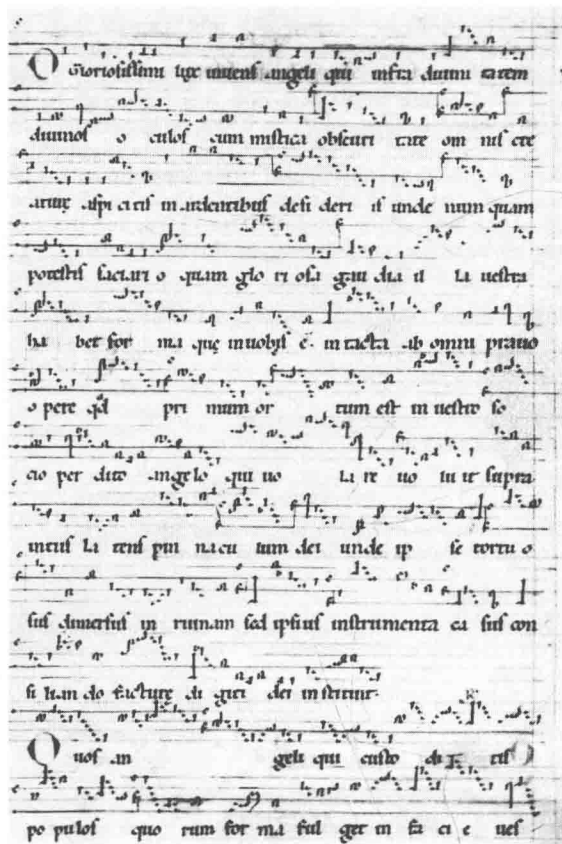 O gloriosissimi lux uiuens angeli qui infra diuini tatem
diuinos o culos cum mistica obscuri tate om nis cre
ature aspi citis in ardentibus desi deri is unde num quam
potestis saciari o quam glo ri osa gau dia il la uestra
ha bet for ma que in uobis e in tacta ab omni prauo
o pere qd pri mum or tum est in uestro so
cio per dito angelo qui uo la re uo lu it supra
intus la tens pin nacu lum dei unde ip se tortu o
sus dimersus in ruinam sed ipsius instrumenta ca sus con
si lian do facture di giti dei instituit
O uos an geli qui custo di tis
po pulos quo rum for ma ful get in fa ci e ues